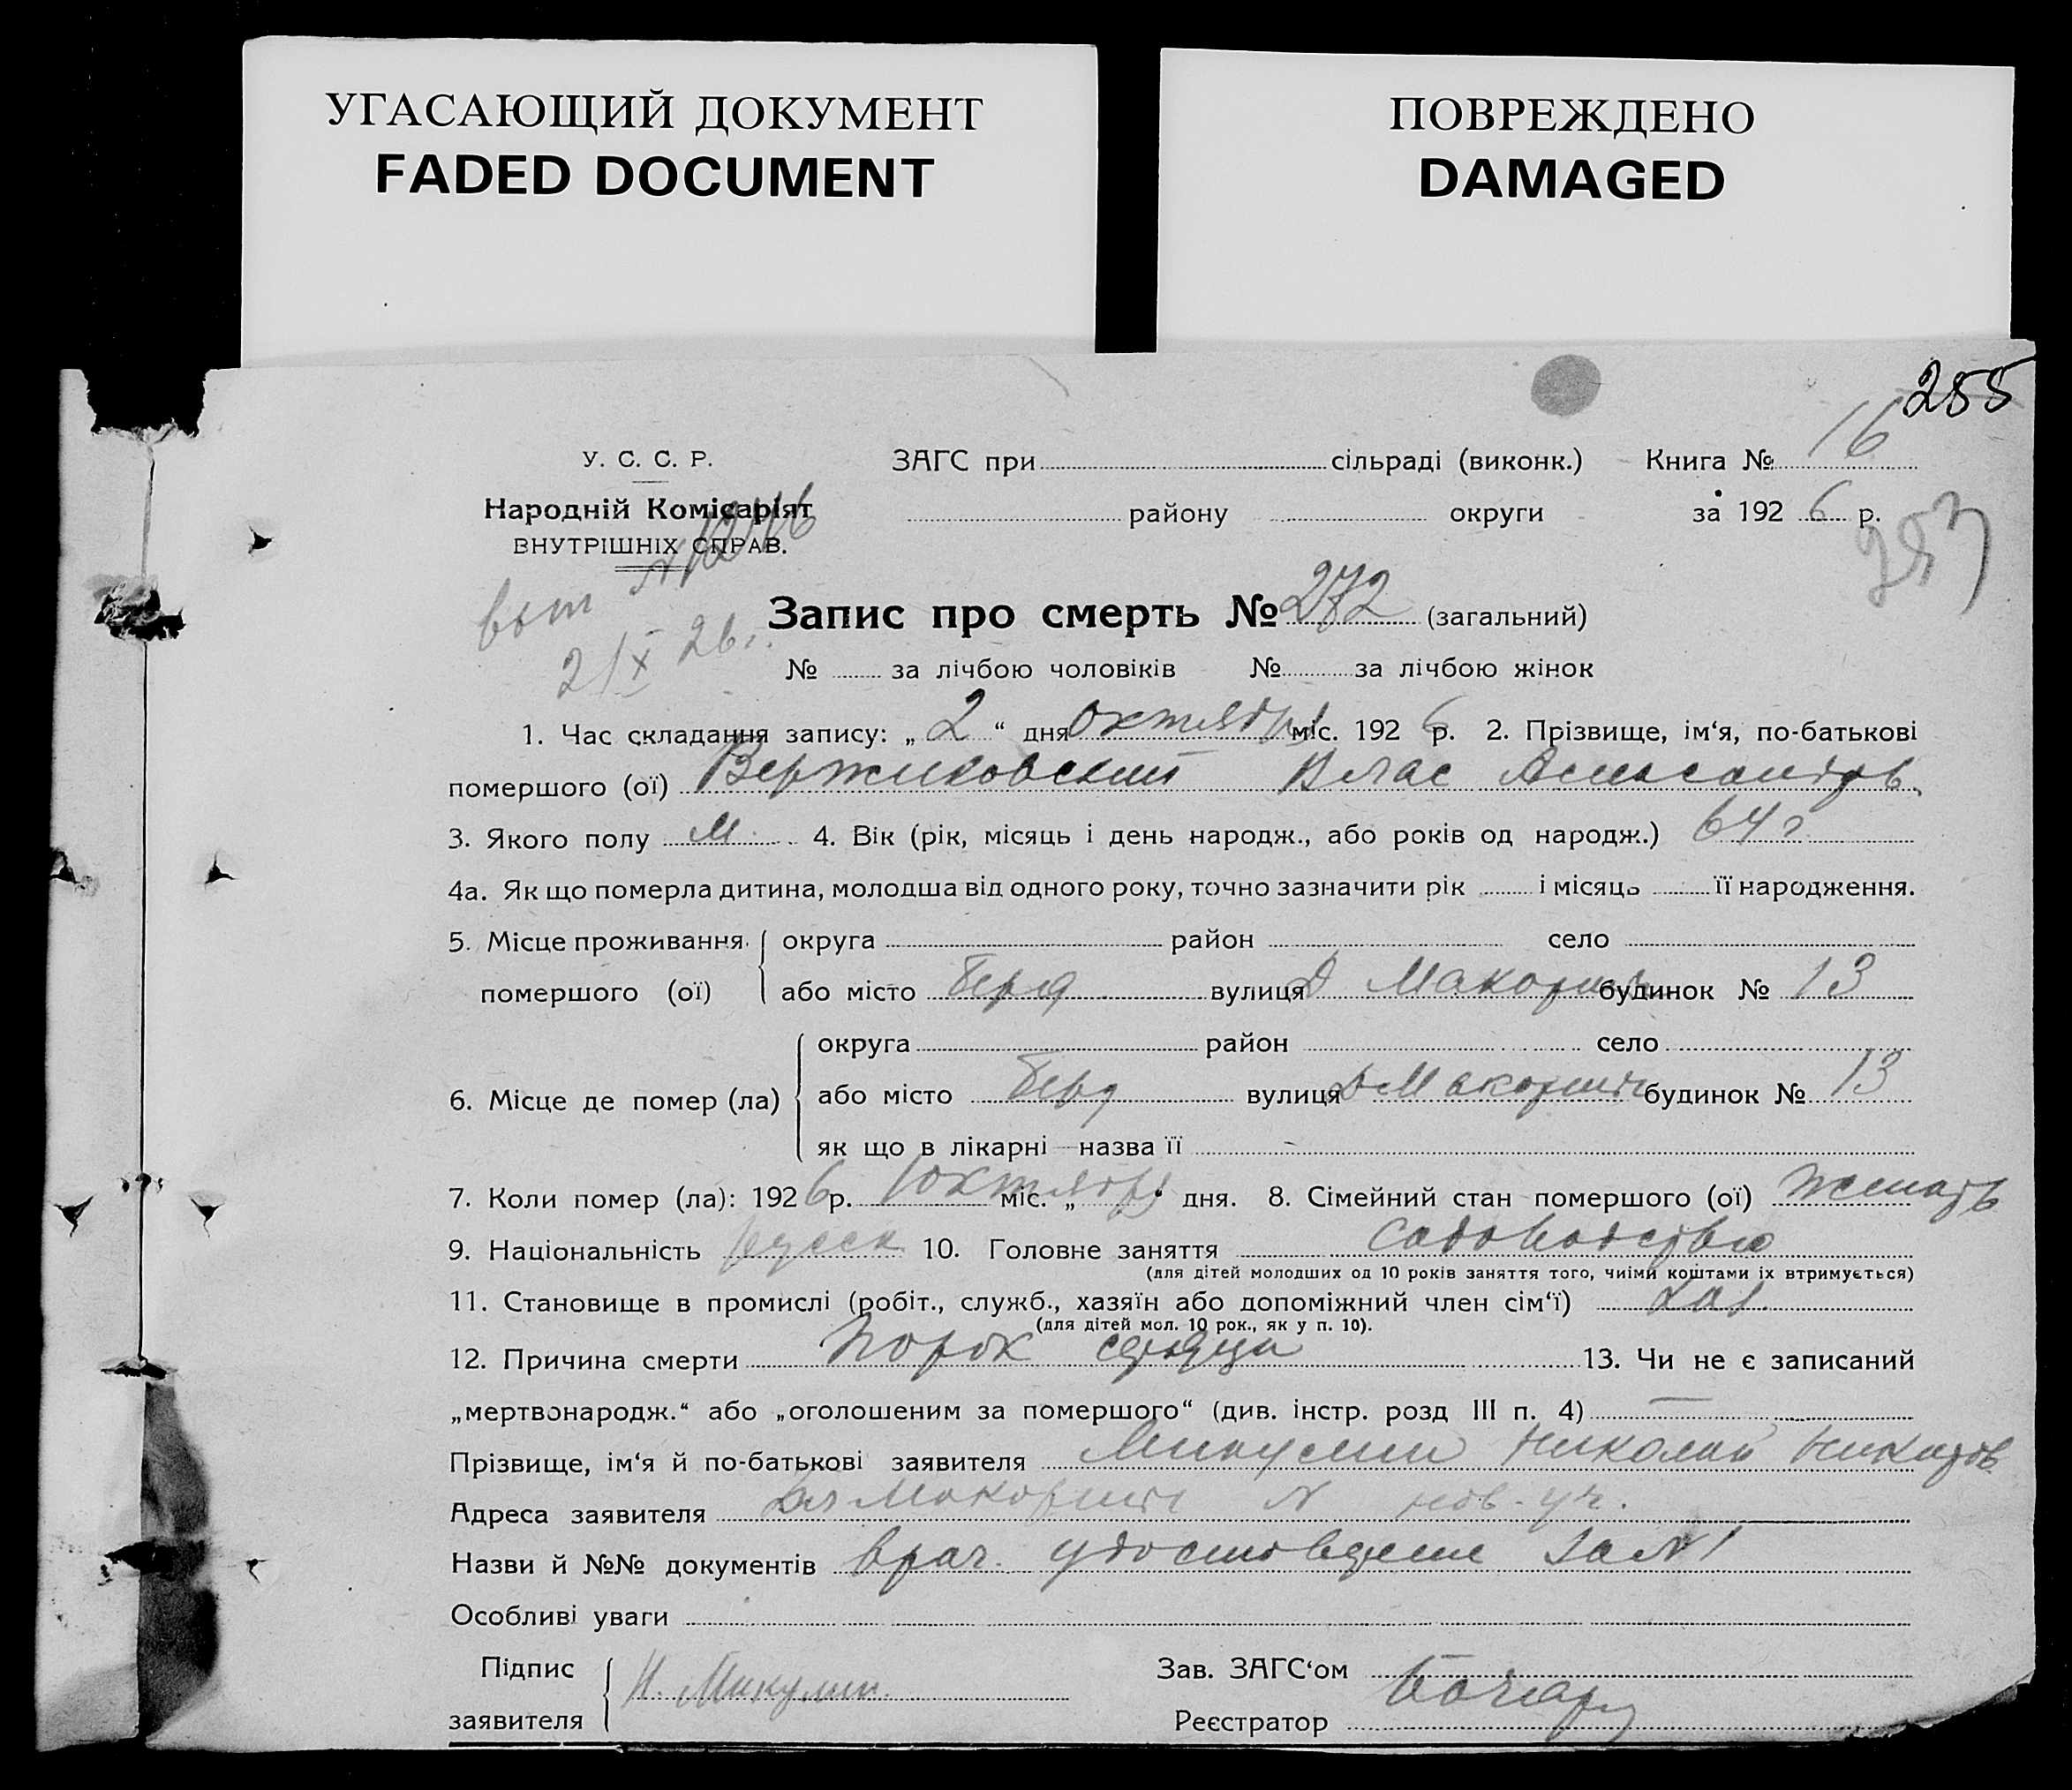 УГАСАЮЩИЙ ДОКУМЕНТ
FADED DOCUMENT
ПОВРЕЖДЕНО
DAMAGED
255
У. С. С. Р.
Народній Комісаріят
ВНУТРІШНІХ СПРАВ.
ЗАГС при сільраді (виконк.) Книга № 16
району округи за 1926 р.
21/X 26 г.
Запис про смерть № 272 (загальний)
№ за лічбою чоловіків № за лічбою жінок
1. Час складання запису: „2“ дня октября міс. 1926 р. 2. Прізвище, ім‘я, по-батькові
помершого (ої) Вержиковский Влас Александров
3. Якого полу м. 4. Вік (рік, місяць і день народж., або років од народж.) 64 г
4а. Як що померла дитина, молодша від одного року, точно зазначити рік і місяць її народження.
5. Місце проживання помершого (ої) округа район село
або місто Берд вулиця Д Макорт будинок № 13
6. Місце де помер (ла) округа район село
або місто Берд вулиця Д Макорти будинок № 13
як що в лікарні—назва її
7. Коли помер (ла): 1926 р. 1 октября міс. „ “ дня. 8. Сімейний стан помершого (ої) женат
9. Національність русск 10. Головне заняття садоводство
(для дітей молодших од 10 років заняття того, чиїми коштами їх втримується)
11. Становище в промислі (робіт., служб., хазяїн або допоміжний член сім‘ї) хоз.
(для дітей мол. 10 рок., як у п. 10).
12. Причина смерти порок сердца 13. Чи не є записаний
„мертвонародж.“ або „оголошеним за помершого“ (див. інстр. розд III п. 4) —
Прізвище, ім‘я й по-батькові заявителя Микулин Николай
Адреса заявителя № нов. уч.
Назви й №№ документів врач. удостоверение за № 1
Особливі уваги
Підпис заявителя Н. Микулин
Зав. ЗАГС‘ом
Реєстратор